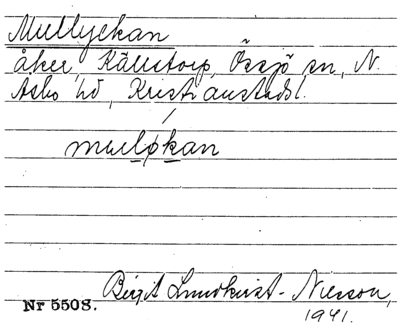 Mullyckan
åker, Källstorp, Össjö sn, N.
Åsbo hd, Kristianstads l.
muløkan
Birgit Lundkvist-Nilsson,
1941.
Nr 5508.